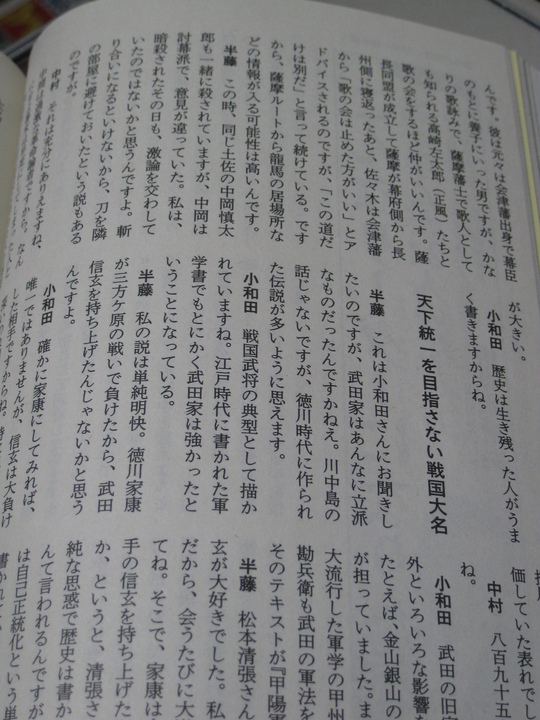 んです。彼は元々は会津藩出身で幕臣
のもとに養子にいった男ですが、かな
りの歌詠みで、薩摩藩士で歌人として
も知られる高崎左太郎(正風)たちと
歌の会をするほど仲がいいんです。薩
長同盟が成立して薩摩が幕府側から長
州側に寝返ったあと、佐々木は会津藩
から「歌の会は止めた方がいい」とア
ドバイスされるのですが、「この道だ
けは別だ」と言って続けている。です
から、薩摩ルートから龍馬の居場所な
どの情報が入る可能性は高いんです。
半藤 この時、同じ土佐の中岡慎太
郎も一緒に殺されていますが、中岡は
討幕派で、意見が違っていた。私は、
暗殺されたその日も、激論を交わして
いたのではないかと思うんですよ。斬
り合いになるといけないから、刀を隣
の部屋に避けておいたという説もある
のですが。
中村 それは充分にありえますね。
が大きい。
小和田 歴史は生き残った人がうま
く書きますからね。
天下統一を目指さない戦国大名
半藤 これは小和田さんにお聞きし
たいのですが、武田家はあんなに立派
なものだったんですかねえ。川中島の
話じゃないですが、徳川時代に作られ
た伝説が多いように思えます。
小和田 戦国武将の典型として描か
れていますね。江戸時代に書かれた軍
学書でもとにかく武田家は強かったと
いうことになっている。
半藤 私の説は単純明快。徳川家康
が三方ケ原の戦いで負けたから、武田
信玄を持ち上げたんじゃないかと思う
んですよ。
小和田 確かに家康にしてみれば、
唯一ではありませんが、信玄は大負け
した相手ですからね。
価していた表れでし
中村 八百九十五
ね。
小和田 武田の旧
外といろいろな影響を
たとえば、金山銀山の
が担っていました。ま
大流行した軍学の甲州
勘兵衛も武田の軍法を
そのテキストが『甲陽軍
半藤 松本清張さん
玄が大好きでした。私
だから、会うたびに大
てね。そこで、家康は
手の信玄を持ち上げた
か、というと、清張さ
純な思惑で歴史は書か
んて言われるんですが
は自己正統化という単